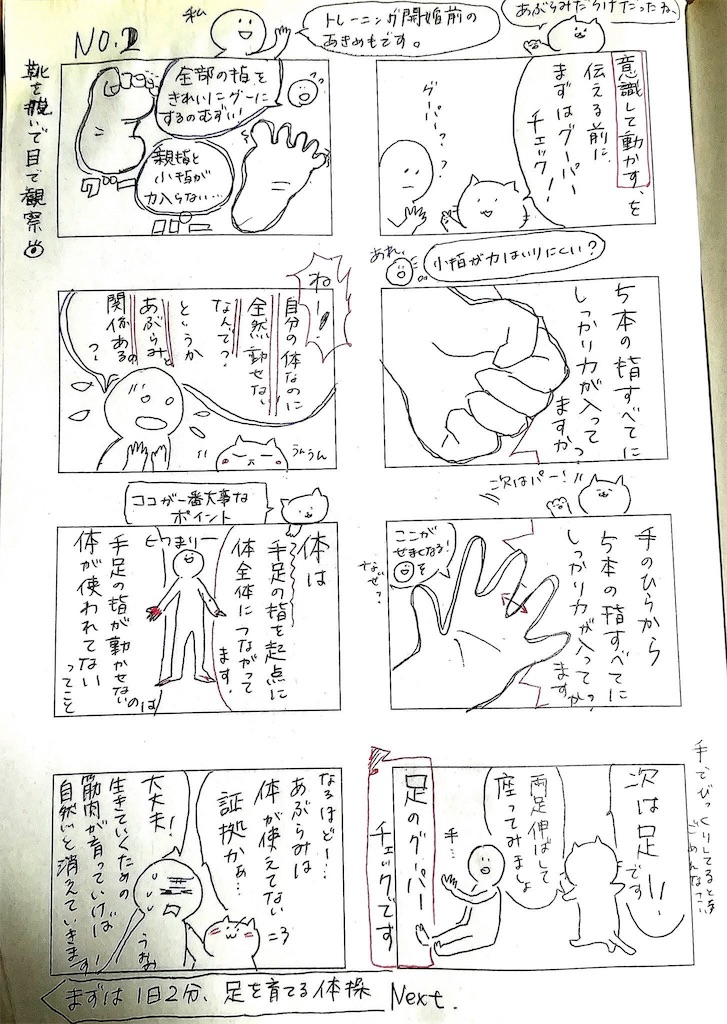 NO.2
私
トレーニング開始前の
あきめもです。
あぶらみだらけだったね
意識して動かす、を
伝える前に、
まずはグーパー
チェック!
グーパー?
小指が力はいりにくい?
あれ、
5本の指すべてに
しっかり力が入って
ますか?
次はパー!
手のひらから
5本の指すべてに
しっかり力が入って
ますか?
ここが
せまくなる!
を
なぜ?
手でびっくりしてるとき
ごめんなさい
次は足です!!
両足伸ばして
座ってみましょ
手…
足のグーパー
チェックです
靴を脱いで目で観察
全部の指を
きれいにグーに
するのむずい!
親指と
小指が
力入らない…
ねー!
自分の体なのに
全然動せない
なんで?
というか
あぶらみと
関係あるの
?
うんうん
ココが一番大事な
ポイント
体は
手足の指を起点に
体全体につながって
ます。
とつまりー
手足の指が動かせないのは
体が使われてない
ってこと
なるほどー…
あぶらみは
体が使えてない
証拠かぁ…
大丈夫!
生きていくための
筋肉が育っていけば
自然と消えていきます!
うぉぉ
まずは1日2分、足を育てる体操
Next.